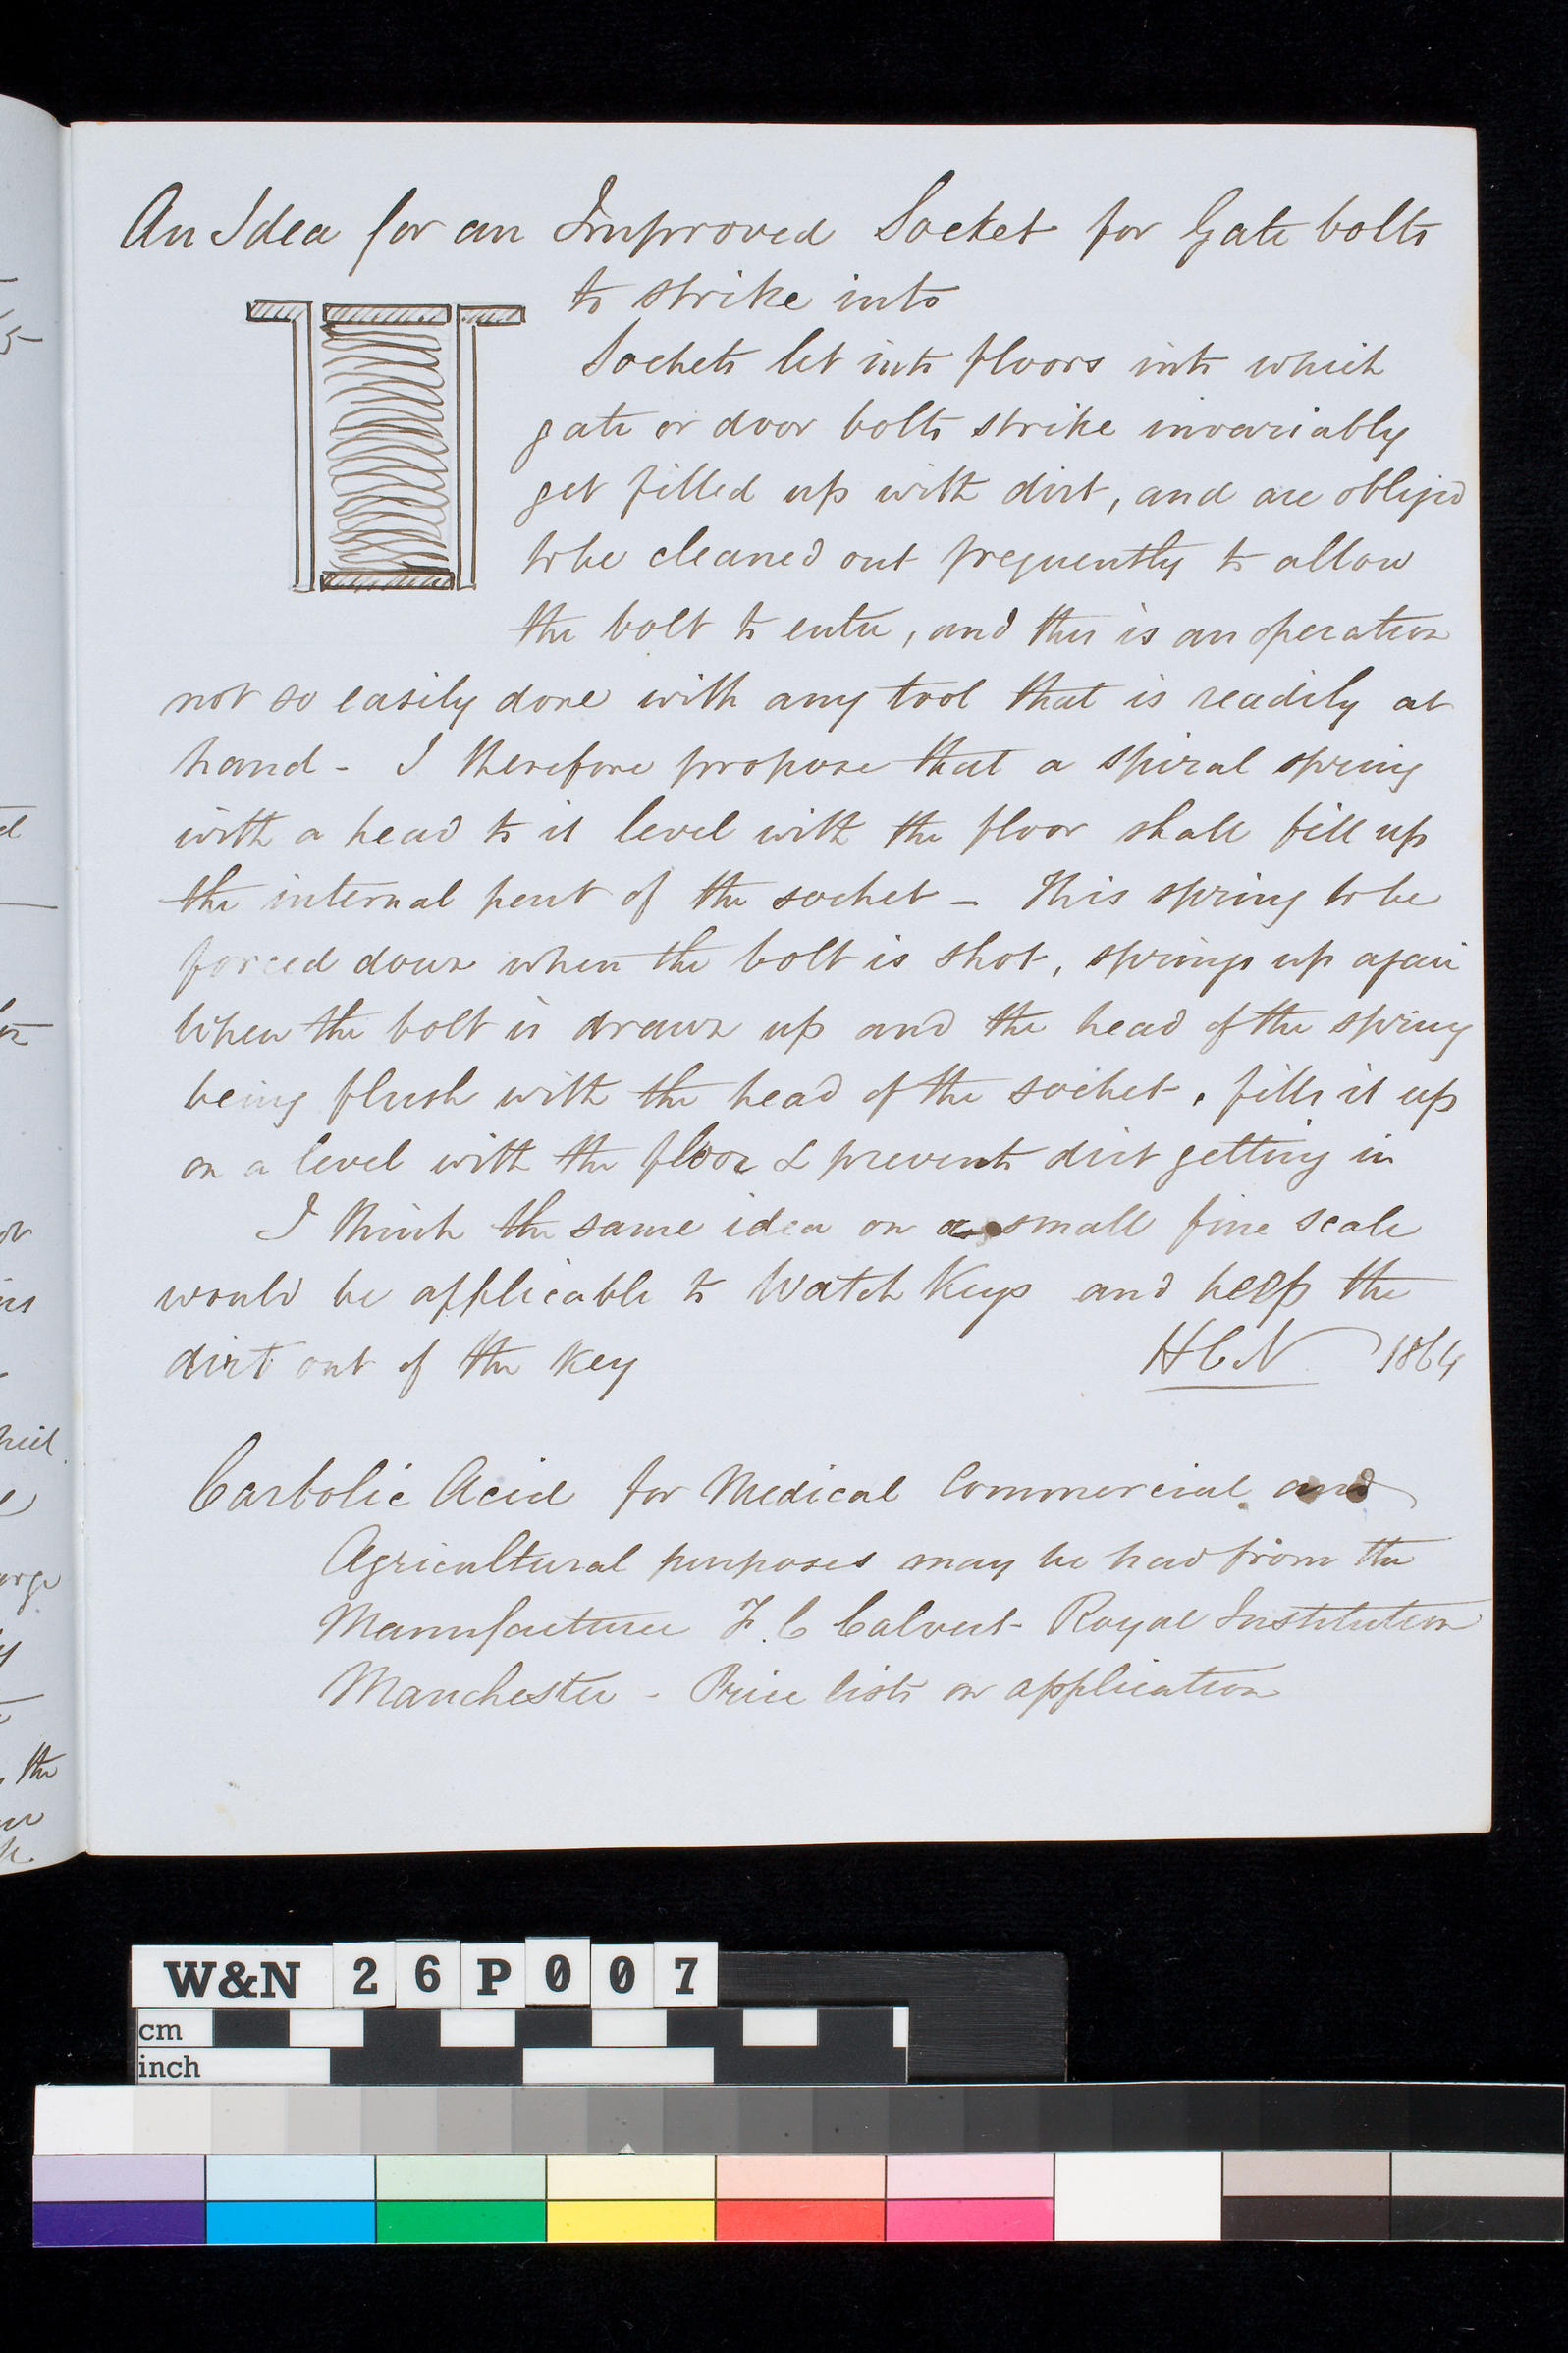 An Idea for an Improved Socket for Gate bolts
to strike into
Sockets let into floors into which
gate or door bolts strike invariably
get filled up with dirt, and are obliged
to be cleaned out frequently to allow
the bolt to enter, and this is an operation
not so easily done with any tool that is readily at
hand - I therefore propose that a spiral spring
with a head to it level with the floor shall fill up
the internal part of the socket - This spring to be
forced down when the bolt is shot, springs up again
When the bolt is drawn up and the head of the spring
being flush with the head of the socket, fills it up
on a level with the floor & prevents dirt getting in
I think the same idea on a small fine scale
would be applicable to Watch Keys and keep the
dirt out of the Key
HCN 1864
Carbolic Acid for Medical Commercial and
Agricultural purposes may be had from the
Manufacturer F. C Calvert - Royal Institution
Manchester - Price lists on application
the
W&N 26P007
cm
inch